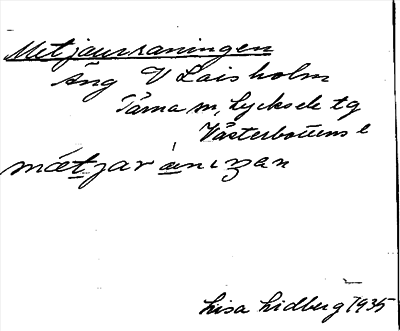 Metjaurraningen
Äng V Laisholm
Tärna sn, Lycksele tg
Västerbottens l
Lisa Lidberg 1935